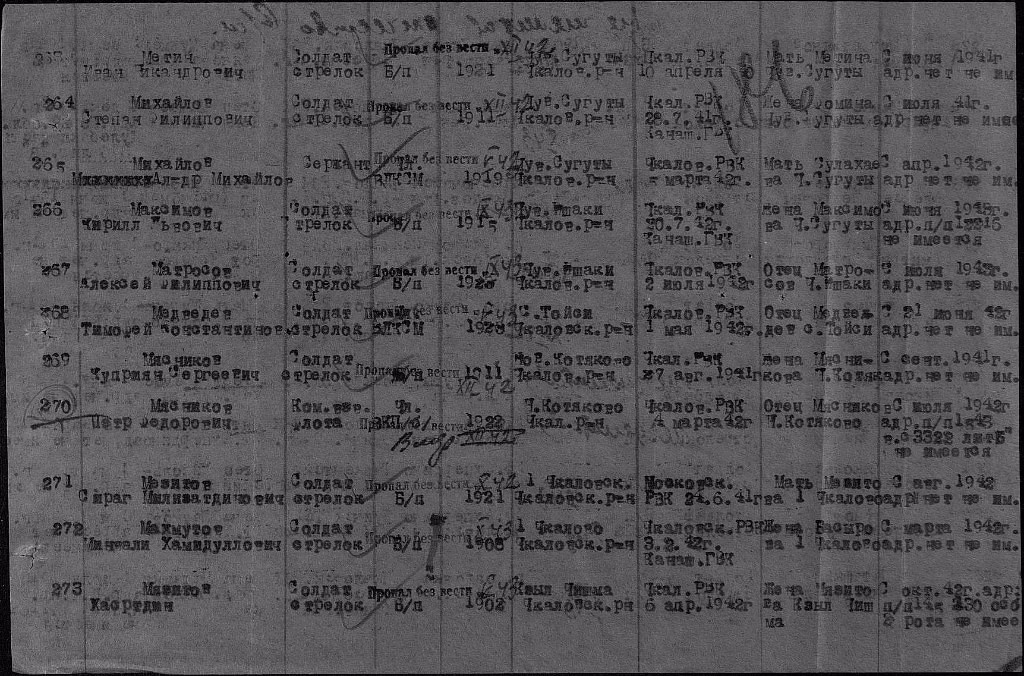 263 Метин Солдат Пропал без вести XII 42 Чув.Сугуты Чкал.РВК Мать Метина С июня 1941г
Иван Никандрович стрелок Б/п 1921 Чкалов.р-н 10 апреля Чув.Сугуты адр.нет не им
264 Михайлов Солдат Пропал без вести XII 42 Чув.Сугуты Чкал.РВК Жена Фомина С июля 41г.
Степан Филиппович стрелок Б/п 1911 Чкалов.р-н 28.7.41г Чув.Сугуты адр нет не имее
Канаш.ГВК
265 Михайлов Сержант Чл. Пропал без вести 42 Чув.Сугуты Чкалов.РВК Мать Сулахае С апр.1942г.
Ал-др Михайлов ВЛКСМ 1919 Чкалов.р-н марта 42г. ва Ч.Сугуты адр нет не им.
266 Максимов Солдат Пропал без вести X 43 Чув.Ишаки Чкал.РВК Жена Максимо С июня 1943г.
Кирилл Львович Стрелок Б/п Чкалов.р-н 20.7.42г. ва Ч.Сугуты адр.п/п
Канаш.ГВК не имеется
267 Матросов Солдат Пропал без вести XI 43 Чув.Ишаки Чкалов.РВК Отец Матро- С июля 1943г.
Алексей Филиппович стрелок Б/п Чкалов.р-н 2 июля 1942г сов Ч.Ишаки адр.нет не им.
268 Медведев Солдат Пропал без вести 42 С.Тойси Чкалов.РВК Отец Медве С 21 июня 42г
Тимофей Константинов. стрелок ВЛКСМ 1923 Чкаловск.р-н 1 мая 1942г. дев с.Тойси адр.нет не им.
269 Мясников Солдат Пропал без вести Нов.Котяково Чкал.РВК Жена Мясни- С сент.1941г.
Куприян Сергеевич стрелок Б/п 1911 Чкалов.р-н 27 авг.1941г кова Ч.Котяк адр.нет не им.
XII 42
270 Мясников Ком.взв. Чл. Ч.Котяково Чкалов.РВК Отец Мясников С июля 1942г
Петр Федорович флота ВКП/б/ Пропал без вести 1922 Чкал.р-н марта 42г Ч.Котяково адр.п/п
XII 42 в.ч 3322 лит"Б"
не имеется
271 Мавитов Солдат Пропал без вести X 42 1 Чкаловск. Московск. Мать Мавито С авг.1942
Сираг стрелок Б/п 1921 Чкаловск.р-н РВК 24.6.41г ва 1 Чкалово адр.нет не им.
272 Махмутов Солдат Пропал без вести X 43 1 Чкалово Чкаловск.РВК Жена Басыро С марта 1942г.
Мингали Хамидуллович стрелок Б/п 1908 Чкаловск.р-н 3.2.42г. ва 1 Чкалово адр.нет не им.
Канаш.ГВК
273 Мавитов Солдат Пропал без вести 43 Кзыл Чишма Чкал.РВК Жена Мавито С окт.42г.адр:
Хасртдин стрелок Б/п 1902 Чкаловск.рн 6 апр.1942г ва Кзыл Чиш п/п 230 особ
ма 2 рота не имее